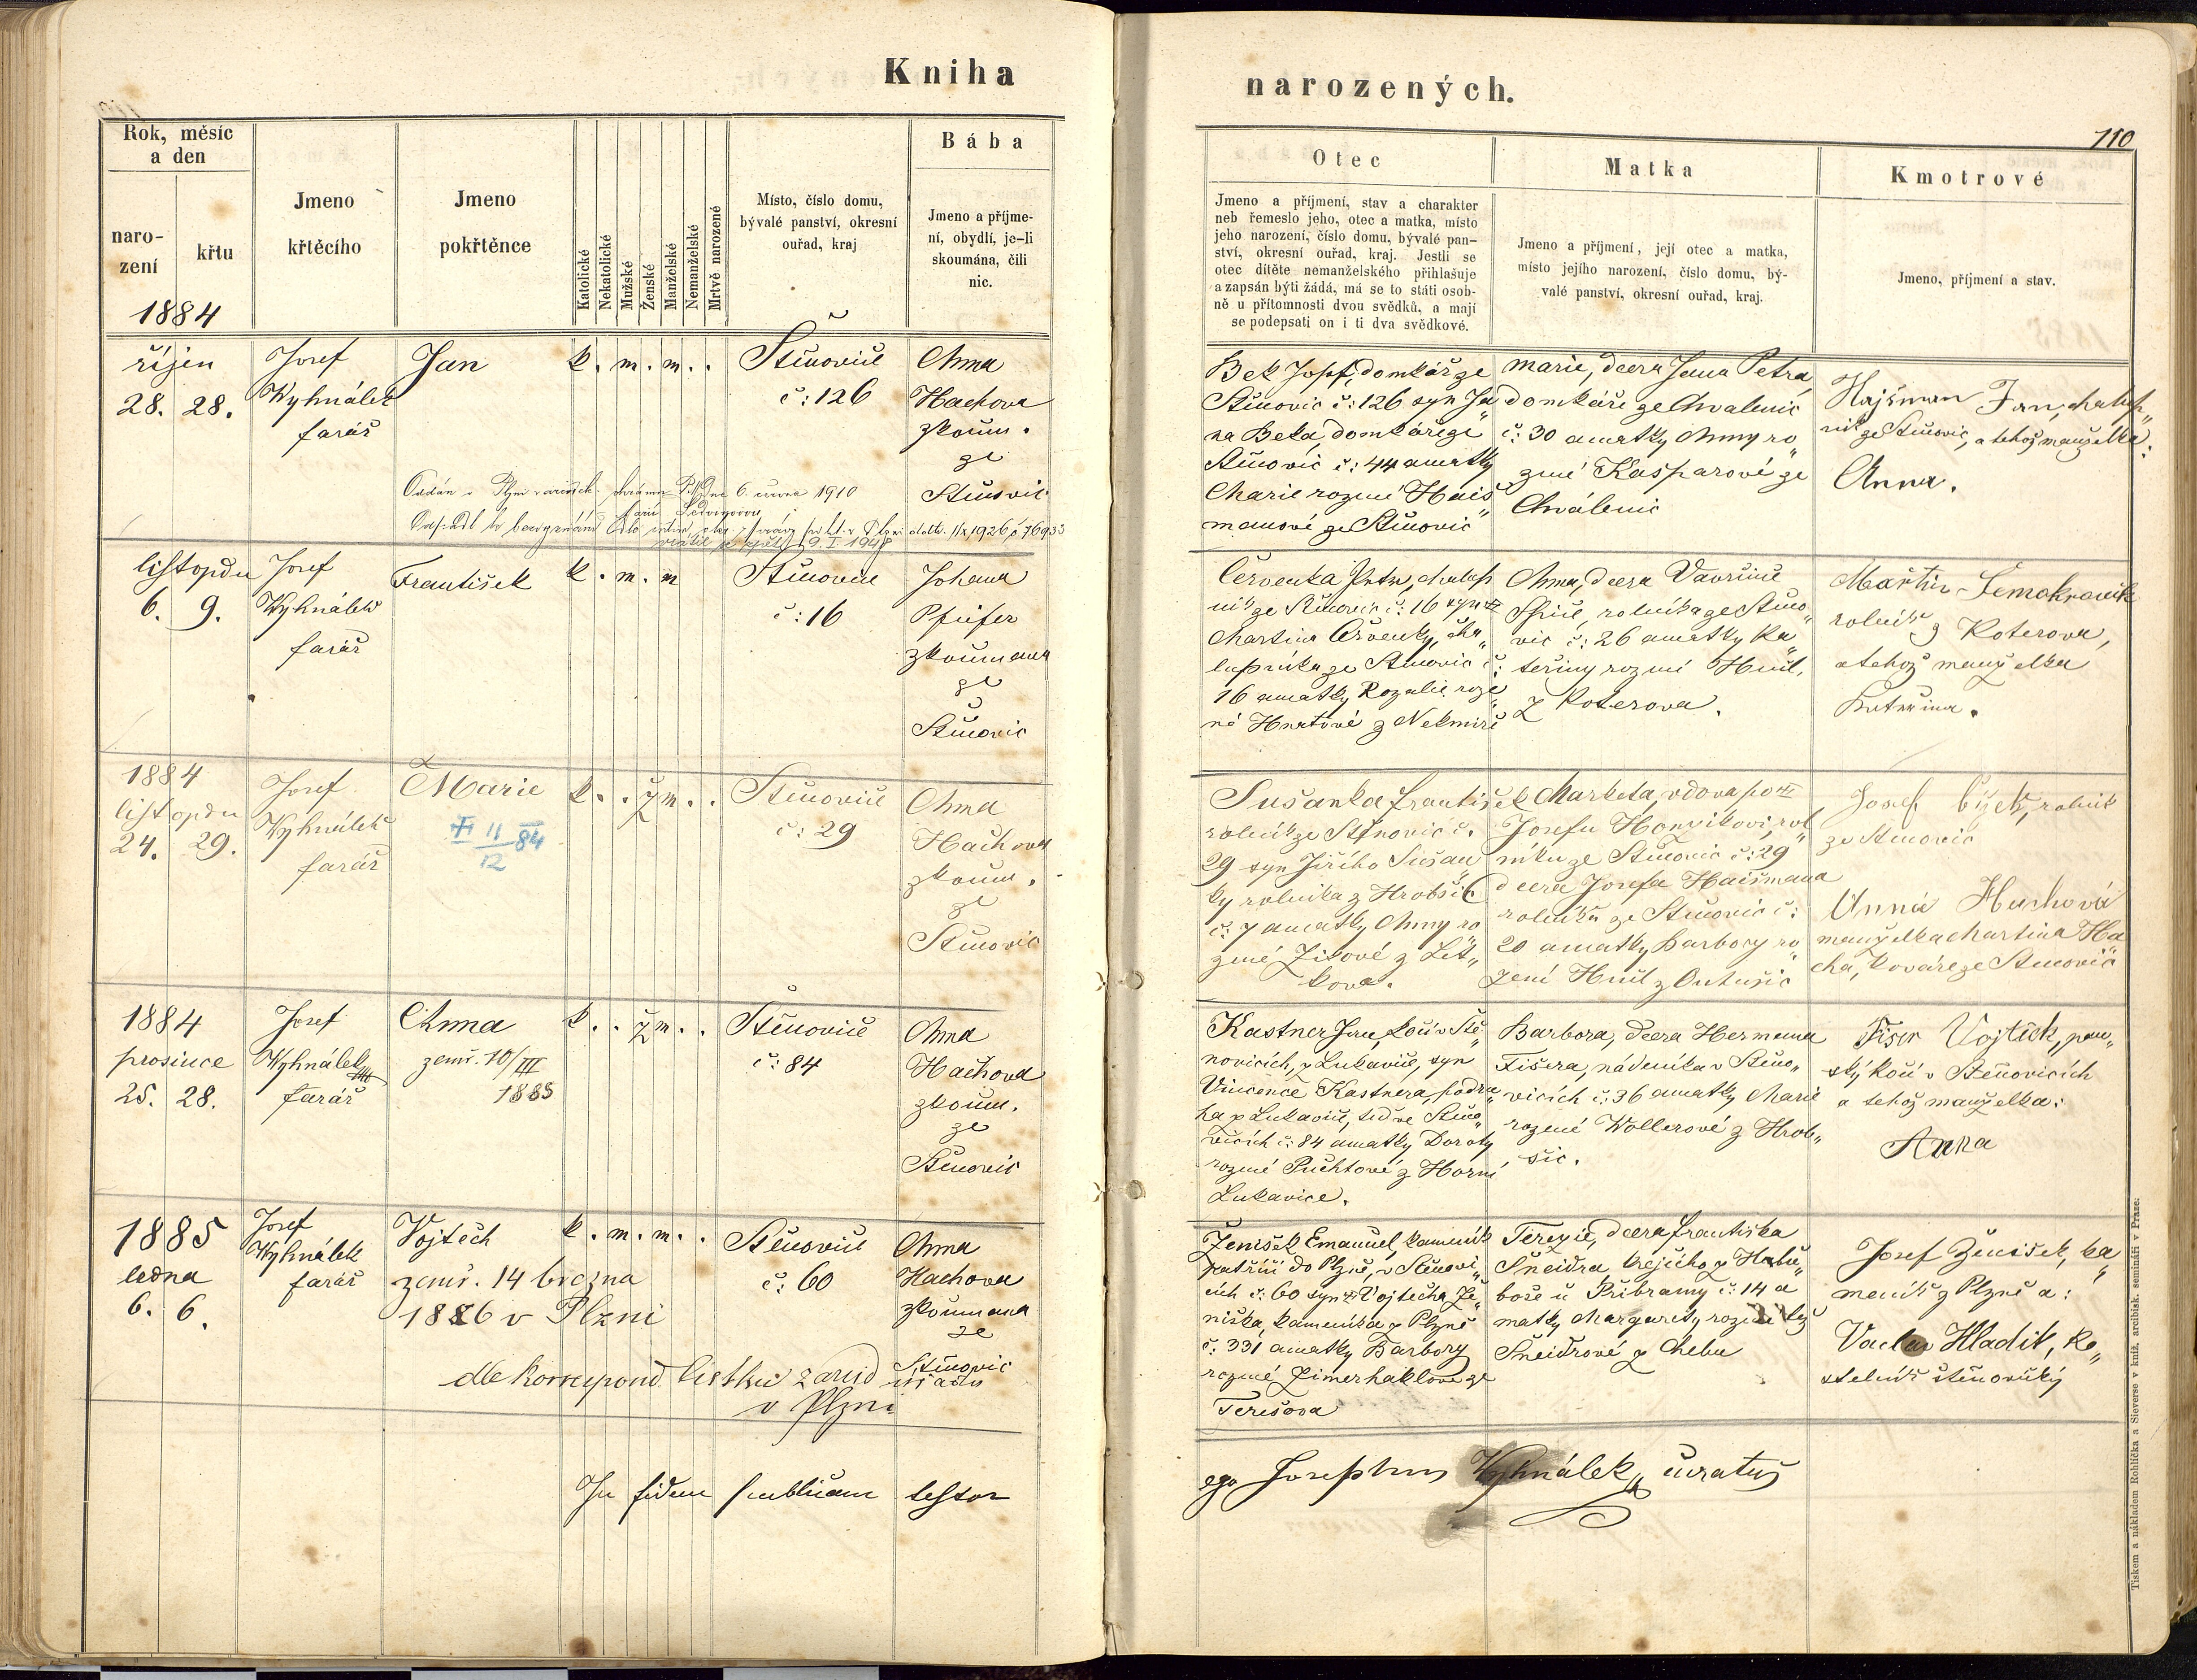 Kniha
narozených.
110
Rok, měsíc
a den
naro-
zení
křtu
1884
Jmeno
křtěcího
Jmeno
pokřtěnce
Katolické
Nekatolické
Mužské
Ženské
Manželské
Nemanželské
Mrtvě narozené
Místo, číslo domu,
bývalé panství, okresní
ouřad, kraj
Bába
Jmeno a příjme-
ní, obydlí, je-li
skoumána, čili
nic.
Otec
Jmeno a příjmení, stav a charakter
neb řemeslo jeho, otec a matka, místo
jeho narození, číslo domu, bývalé pan-
ství, okresní ouřad, kraj. Jestli se
otec dítěte nemanželského přihlašuje
a zapsán býti žádá, má se to státi osob-
ně u přítomnosti dvou svědků, a mají
se podepsati on i ti dva svědkové.
Matka
Jmeno a příjmení, její otec a matka,
místo jejího narození, číslo domu, bý-
valé panství, okresní ouřad, kraj.
Kmotrové
Jmeno, příjmení a stav.
říjen
28. 28.
Josef
Wyhnálek
farář
Jan
k. m. m. .
Štěnovice
č: 126
Anna
Hachova
zkoum.
ze
Štěnovic
6. února 1910
Bek Josef, domkář ze
Štěnovic č: 126 syn Ja„
na Beka, domkáře ze
Štěnovic č: 44 a matky
Marie rozené Hais„
manové ze Štěnovic
Marie, dcera Jana Petra,
domkáře ze Chválenic
č: 30 a matky Anny ro„
zené Kasparové ze
Chválenic
Hajšman Jan, chalup„
ník ze Štěnovic, a tehož manželka:
Anna.
listopadu
6. 9.
Josef
Wyhnálek
farář
František
k. m. m
Štěnovice
č: 16
Johana
Pfeifer
zkoumana
ze
Štěnovic
Červenka Petr, chalup
ník ze Štěnovic č: 16 syn
Martina Červenky, cha„
lupníka ze Štěnovic č:
16 a matky Rozalie roze„
né Hnatové z Nekmíře
Anna, dcera Vavřince
rolníka ze Štěno„
vic č: 26 a matky Ka„
teřiny rozené
z Koterova.
Martin
rolník z Koterova,
a tehož manželka
Kateřina.
1884
listopadu
24. 29.
Josef
Wyhnálek
farář
Marie
✝ 11/12 84
k. . ž m. .
Štěnovice
č: 29
Anna
Hachova
zkoum.
ze
Štěnovic
Sušanka František
rolník ze Štěnovic č.
29 syn Jiřího Sušan„
ky rolníka z Hrobšic
č: 7 a matky Anny ro„
zené Zítové z Lít„
kova.
Markéta, vdova po
Josefu rol„
níku ze Štěnovic č: 29
dcera Josefa Haišmana
rolníka ze Štěnovic č:
20 a matky Barbory ro„
zené
Josef rolník
ze Štěnovic
Anna Hachová
manželka Martina Ha„
cha, kováře ze Štěnovic
1884
prosince
25. 28.
Josef
Wyhnálek
farář
Anna
zemř. 10/III
1885
k. . ž m. .
Štěnovice
č: 84
Anna
Hachova
zkoum.
ze
Štěnovic
Kastner Jan, kočí v Ště„
novicích, z Lukavice, syn
Vincence Kastnera,
z Lukavic, teď ve Štěno„
vicích č: 84 a matky Doroty
rozené Puchtové z Horní
Lukavice.
Barbora, dcera Hermana
Fišera, nádeníka v Štěno„
vicích č: 36 a matky Marie
rozené Wollerové z Hrob„
šic.
Fišer Vojtěch, pan„
ský kočí v Štěnovicích
a tehož manželka:
Anna
1885
ledna
6. 6.
Josef
Wyhnálek
farář
Vojtěch
zemř. 14 března
1886 v Plzni
dle korrespond. lístku z arcid
úřadu
v Plzni
k. m. m. .
Štěnovice
č: 60
Anna
Hachova
zkoumana
ze
Štěnovic
Ženíšek Emanuel, kameník
patřící do Plzně, v Štěnovi„
cích č: 60 syn Vojtěcha Že„
níška, kameníka z Plzně
č: 331 a matky Barbory
rozené Zimerhaklove ze
Terešova
Terezie, dcera Františka
Šneidra krejčího z
u Příbramy č: 14 a
matky Margarety rozené též
Šneidrové z Chebu
Josef Ženíšek, ka„
meník z Plzně a:
Vaclav Hladik, ko„
stelník štěnovický
In fidem publicam testor
ego Josephus Wyhnálek, curatus
Tiskem a nákladem Rohlíčka a Sieverse v kníž. arcibisk. semináři v Praze.